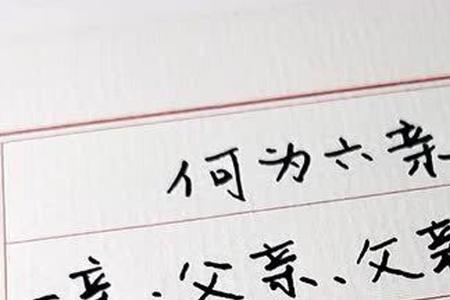 何为六亲
亲、父亲、父亲